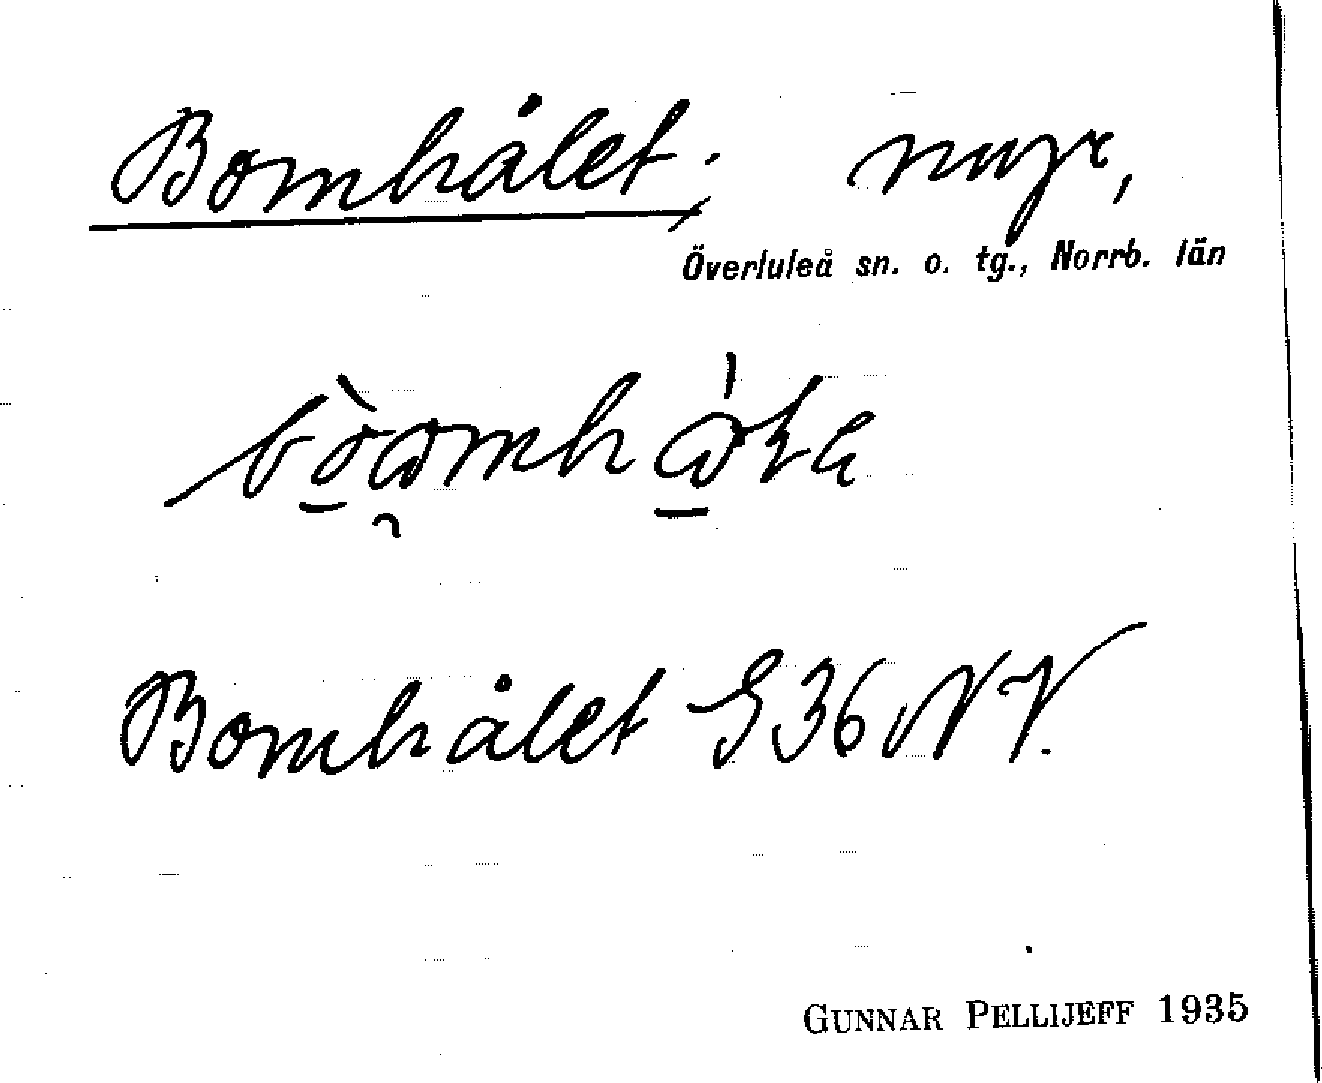 Bomhålet; myr,
Överluleå sn. o. tg., Norrb. län
Bomhålet G36 NV.
GUNNAR PELLIJEFF 1935